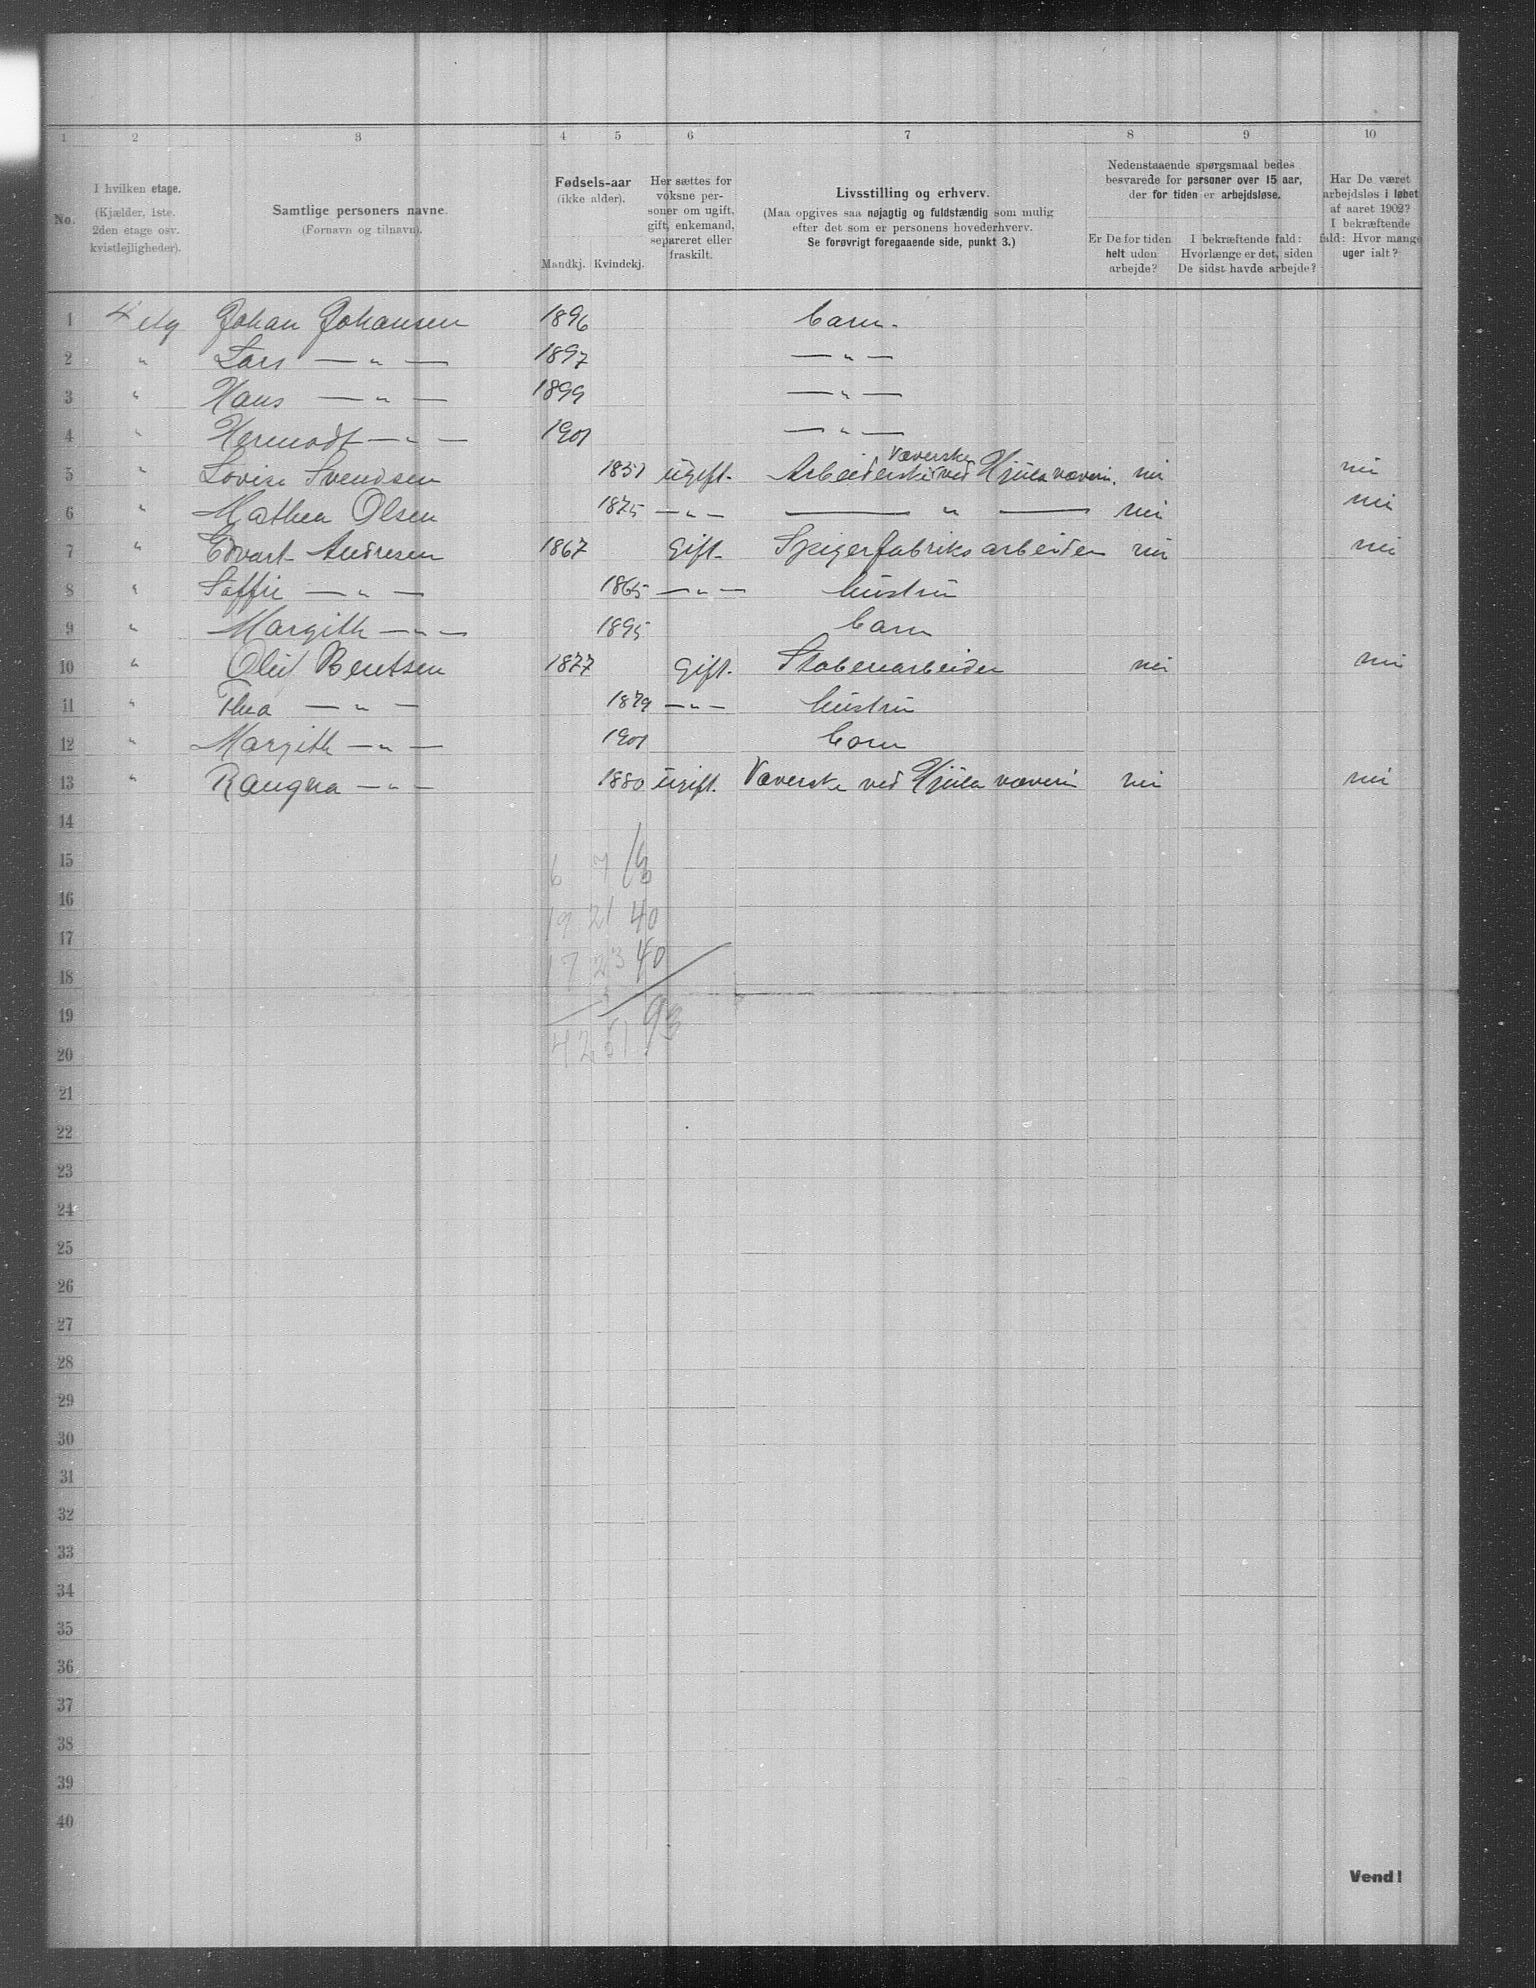 1 2 3 4 5 6 7 8 9 10
No.
I hvilken etage.
(Kjælder, 1ste.
2den etage osv.
kvistlejligheder).
Samtlige personers navne.
(Fornavn og tilnavn).
Fødsels-aar
(ikke alder).
Mandkj. Kvindekj.
Her sættes for
voksne per-
soner om ugift,
gift, enkemand,
separeret eller
fraskilt.
Livsstilling og erhverv.
(Maa opgives saa nøjagtig og fuldstændig som mulig
efter det som er personens hovederhverv.
Se forøvrigt foregaaende side, punkt 3.)
Nedenstaaende spørgsmaal bedes
besvarede for personer over 15 aar,
der for tiden er arbejdsløse.
Er De for tiden
helt uden
arbejde?
I bekræftende fald:
Hvorlænge er det, siden
De sidst havde arbejde?
Har De været
arbejdsløs i løbet
af aaret 1902?
I bekræftende
fald: Hvor mange
uger ialt?
1 4 etg Johan Johansen 1896 barn.
2 " Lars — " — 1897 — " —
3 " Hans — " — 1899 — " —
4 " Hermodt — " — 1901 — " —
Væverske
5 " Lovise Svendsen 1851 ugift. Arbeiderske ved Hjula væveri. nei nei
6 " Mathea Olsen 1875 — " — — " — nei nei
7 " Edvart Andresen 1867 Gift. Spigerfabriksarbeider nei nei
8 " Soffie — " — 1865 — " — hustru
9 " Margith — " — 1895 barn
10 " Oluf Bentsen 1877 Gift. Støberiarbeider nei nei
11 " Thea — " — 1879 — " — hustru
12 " Margith — " — 1901 barn
13 " Raugna — " — 1880 ugift. Væverske ved Hjula væveri nei nei
14
15 6 7 13
16 19 21 40
17 17 23 40
18
19 93
20 42 51
21
22
23
24
25
26
27
28
29
30
31
32
33
34
35
36
37
38
39
40
Vend!